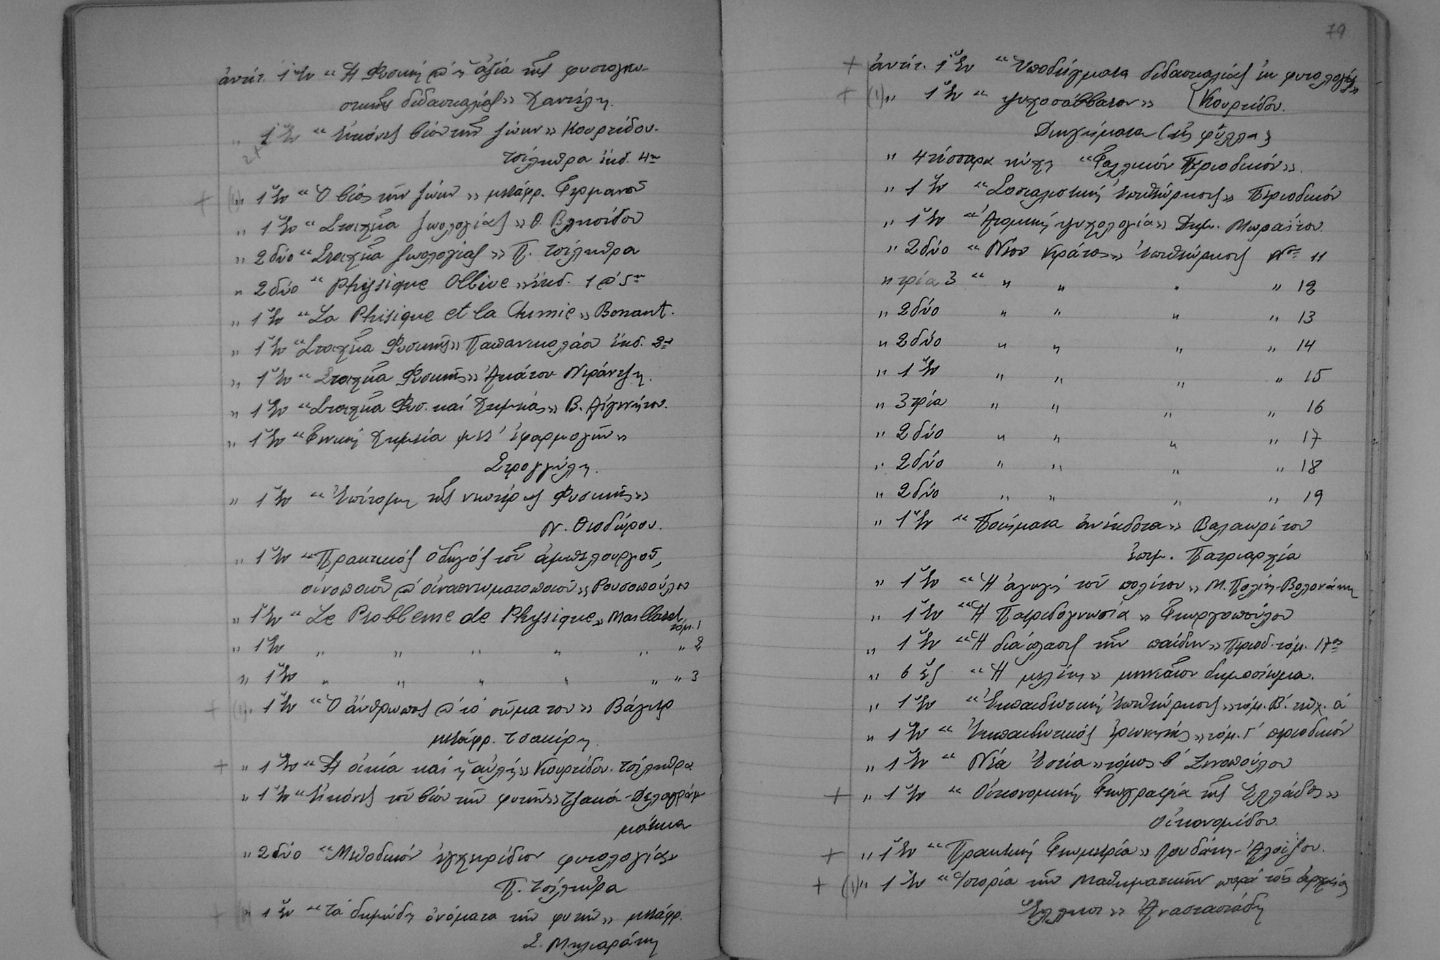 ἀντίτ. 1 ἓν “Ἡ Φυσικὴ ἡ ἀξία τῆς φυσιογνω-
στικῆς διδασκαλίας„
„ 1 ἓν “Εἰκόνες βίου τῶν ζώων„ Κουρτίδου.
Τσίληθρα ἐκδ. 4η
+ (1) „ 1 ἓν “Ὁ βίος τῶν ζώων„ μετάφρ. Γερμανοῦ
„ 1 ἓν “Στοιχεῖα ζωολογίας„ Θ. Βλησίδου
„ 2 δύο “Στοιχεῖα ζωολογίας„ Π. Τσίληθρα
„ 2 δύο “Physique Ollive„ ἐκδ. 1 5η
„ 1 ἓν “La Phisique et la Chimie„ Bonant.
„ 1 ἓν “Στοιχεῖα Φυσικῆς„ Παπανικολάου ἐκδ. 2α
„ 1 ἓν “Στοιχεῖα Φυσικῆς„
„ 1 ἓν “Στοιχεῖα Φυσ. καὶ Χημείας„ Β. Αἰγινήτου.
„ 1 ἓν “Γενικὴ Χημεία μετ' ἐφαρμογῶν„
Στρογγύλη.
„ 1 ἓν “Ἐπίτομη τῆς νεωτέρας Φυσικῆς„
Ν. Θεοδώρου.
„ 1 ἓν “Πρακτικὸς ὁδηγὸς τοῦ ἀμπελουργοῦ,
οἰνοποιοῦ οἰνοπνευματοποιοῦ„ Ρουσοπούλου
„ 1 ἓν “Le Probleme de Physique„ Maillard
τομ. 1
„ 1 ἓν „ „ „ „ „ „ 2
„ 1 ἓν „ „ „ „ „ „ 3
+ (1) „ 1 ἓν “Ὁ ἄνθρωπος τὸ σῶμα του„ Βάγνερ
μετάφρ. Τσακίρη.
+ „ 1 ἓν “Ἡ οἰκία καὶ ἡ αὐλή„ Κουρτίδου. Τσίληθρα
„ 1 ἓν “Εἰκόνες τοῦ βίου τῶν φυτῶν„ Τζακά-Δελαγραμ-
μάτικα
„ 2 δύο “Μεθοδικὸν ἐγχειρίδιον φυτολογίας„
Π. Τσίληθρα
+ „ 1 ἓν “Τὰ δημώδη ὀνόματα τῶν φυτῶν„ μετάφρ.
Σ. Μηλιαράκη
79
+ ἀντίτ. 1 ἓν “Ὑποδείγματα διδασκαλίας ἐκ φυτολογίας„
+ (1) „ 1 ἓν “Ψυχοσάββατον„ (Κουρτίδου.
Διηγήματα
„ 4 τέσσαρα τεύχη Περιοδικόν„.
„ 1 ἓν “Σοσιαλιστικὴ Ἐπιθεώρησις„ Περιοδικόν
„ 1 ἓν “Ἀτομικὴ ψυχολογία„ Δημ. Μωραΐτου.
„ 2 δύο “Νέον Κράτος„ Ἐπιθεώρησις № 11
„ τρία 3 “ „ „ „ „ 12
„ 2 δύο „ „ „ „ 13
„ 2 δύο „ „ „ „ 14
„ 1 ἓν „ „ „ „ 15
„ 3 τρία „ „ „ „ 16
„ 2 δύο „ „ „ „ 17
„ 2 δύο „ „ „ „ 18
„ 2 δύο „ „ „ „ 19
„ 1 ἓν “Ποιήματα ἀνέκδοτα„ Βαλαωρίτου
ἐπιμ. Πατριαρχία
„ 1 ἓν “Ἡ ἀγωγὴ τοῦ πολίτου„ Μ. Παλλη-Βολονάκη
„ 1 ἓν “Ἡ Πατριδογνωσία„ Γεωργοπούλου
„ 1 ἓν “Ἡ διάπλασις τῶν παίδων„ Περιοδ. τόμ. 17ος
„ 6 ἓξ “Ἡ μελέτη„ μηνιαῖον δημοσίευμα.
„ 1 ἓν “Ἐκπαιδευτικὴ Ἐπιθεώρησις„ τόμ. Β. τεῦχ. ά
„ 1 ἓν “Ἐκπαιδευτικὸς Ἐρευνητής„ τόμ. Γ' περιοδικόν
„ 1 ἓν “Νέα Ἑστία„ τόμος β' Ξενοπούλου
+ „ 1 ἓν “Οἰκονομικὴ Γεωγραφία τῆς Ἑλλάδος„
Οἰκονομίδου.
+ „ 1 ἓν “Πρακτικὴ Γεωμετρία„ Γουδάκη-Ἀλοΐζου.
+ (1) „ 1 ἓν “Ἱστορία τῶν Μαθηματικῶν παρὰ τοῖς ἀρχαίοις
Ἕλλησι„ Ἀναστασιάδη